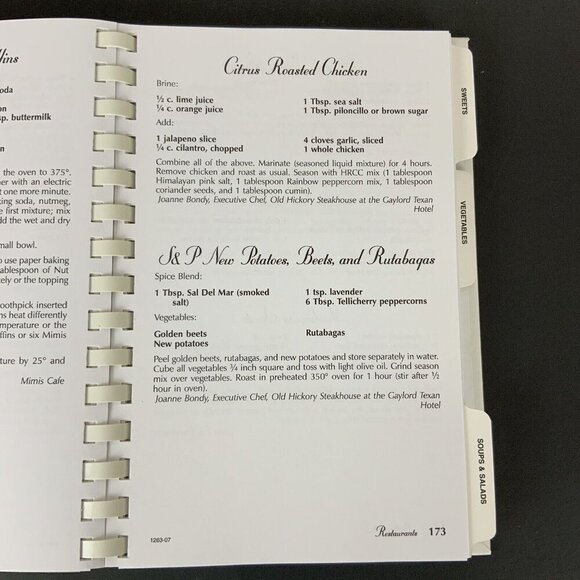 ffins
oda
on
sp. buttermilk
on
the oven to 375°.
er with an electric
at one more minute.
king soda, nutmeg,
e first mixture; mix
dd the wet and dry
mall bowl.
o use paper baking
ablespoon of Nut
ely or the topping
oothpick inserted
ns heat differently
mperature or the
ffins or six Mimis
ture by 25° and
Mimis Cafe
Citrus Roasted Chicken
Brine:
½ c. lime juice 1 Tbsp. sea salt
¼ c. orange juice 1 Tbsp. piloncillo or brown sugar
Add:
1 jalapeno slice 4 cloves garlic, sliced
¼ c. cilantro, chopped 1 whole chicken
Combine all of the above. Marinate (seasoned liquid mixture) for 4 hours.
Remove chicken and roast as usual. Season with HRCC mix (1 tablespoon
Himalayan pink salt, 1 tablespoon Rainbow peppercorn mix, 1 tablespoon
coriander seeds, and 1 tablespoon cumin).
Joanne Bondy, Executive Chef, Old Hickory Steakhouse at the Gaylord Texan
Hotel
S&P New Potatoes, Beets, and Rutabagas
Spice Blend:
1 Tbsp. Sal Del Mar (smoked 1 tsp. lavender
salt) 6 Tbsp. Tellicherry peppercorns
Vegetables:
Golden beets Rutabagas
New potatoes
Peel golden beets, rutabagas, and new potatoes and store separately in water.
Cube all vegetables ¾ inch square and toss with light olive oil. Grind season
mix over vegetables. Roast in preheated 350° oven for 1 hour (stir after ½
hour in oven).
Joanne Bondy, Executive Chef, Old Hickory Steakhouse at the Gaylord Texan
Hotel
1263-07
Restaurants 173
SWEETS
VEGETABLES
SOUPS & SALADS